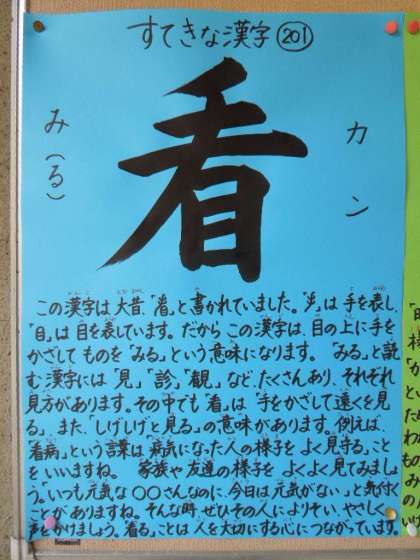 すてきな漢字 201
看
カン
み(る)
この漢字は大昔、「看」と書かれていました。「手」は手を表し、
「目」は目を表しています。だからこの漢字は、目の上に手を
かざしてものを「みる」という意味になります。「みる」と読
む漢字には「見」「診」「観」など、たくさんあり、それぞれ
見方があります。その中でも「看」は「手をかざして遠くを見
る」また、「しげしげと見る」の意味があります。例えば、
「看病」という言葉は「病気になった人の様子をよく見守る」こと
をいいますね。家族や友達の様子をよくよく見てみましょ
う。「いつも元気な○○さんなのに、今日は元気がない」と気付く
ことがありますね。そんな時、ぜひその人によりそい、やさしく
声をかけましょう。「看る」ことは人を大切にする心につながっています。